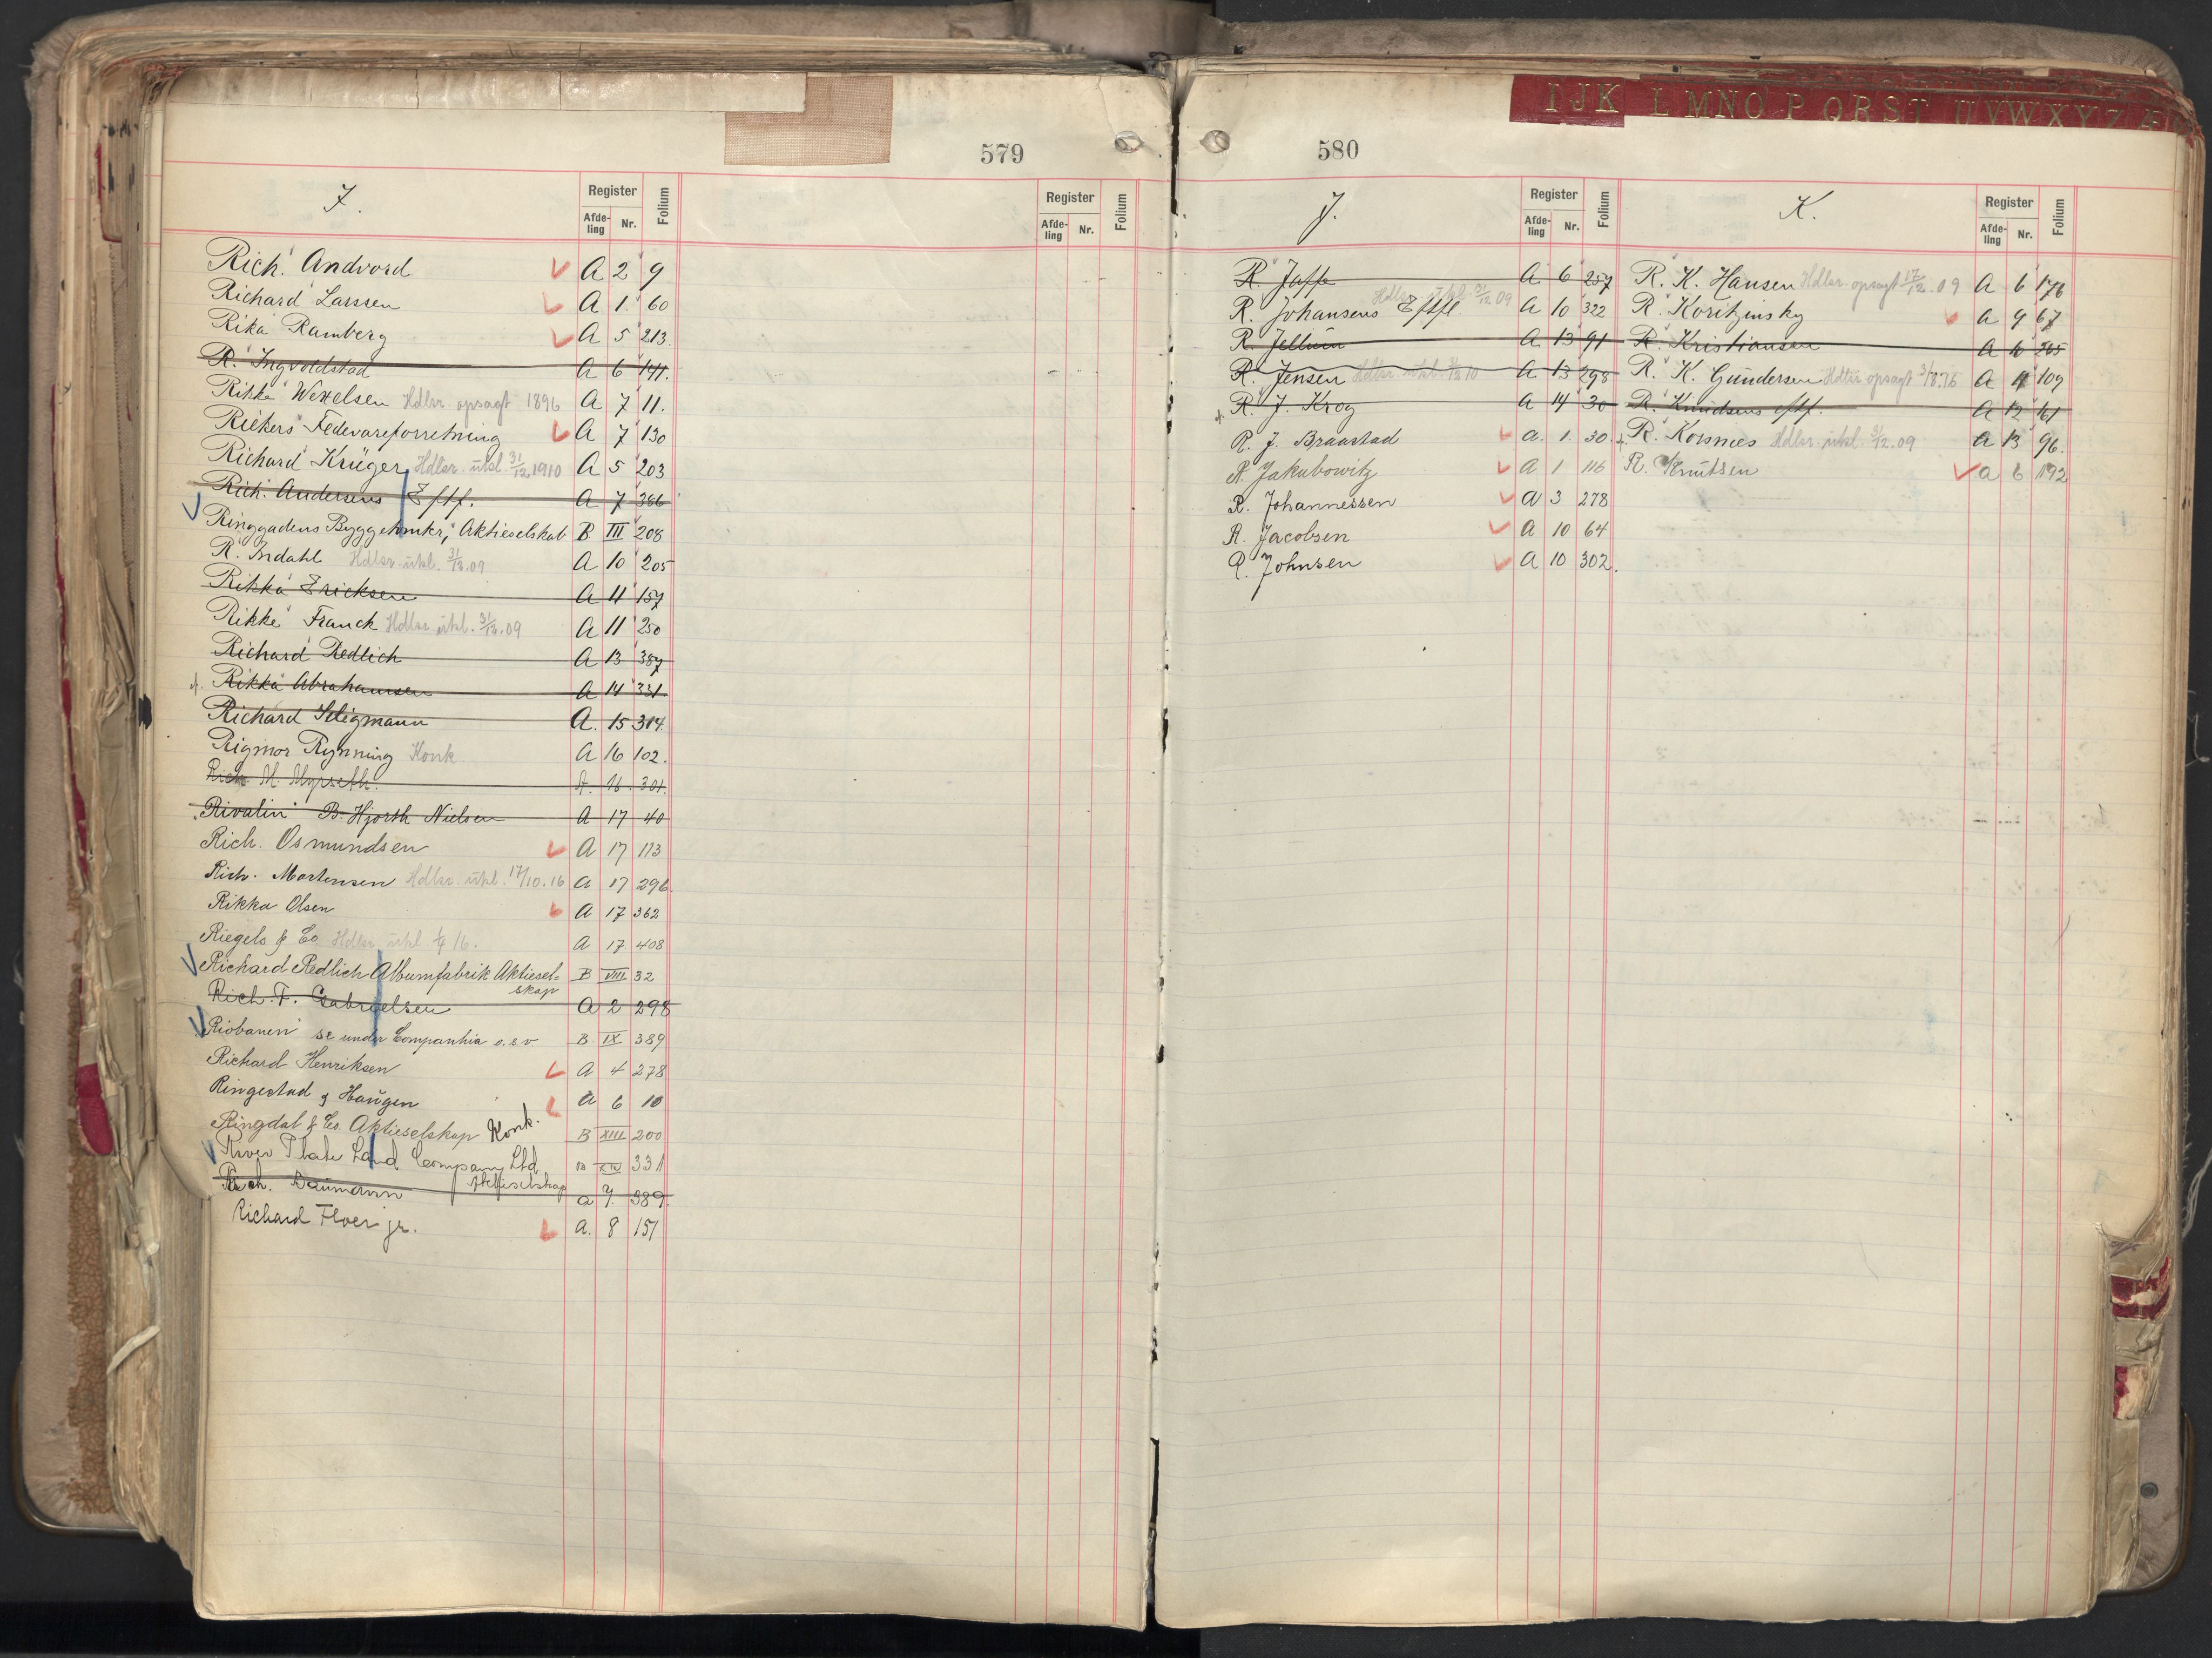 579
I.
Register
Afde-
ling
Nr.
Folium
Register
Afde-
ling
Nr.
Folium
Rich. Andvord A 2 9
Richard Larssen A 1. 60
Rika Ramberg A 5 213.
R. Ingvoldstad A 6 141.
Rikke Wexelsen Hdlsr. opsagt 1896 A 7 11.
Riekers Fedevareforretning A 7 130
Richard Krüger Hdlsr. utsl. 31/12.1910 A 5 203
Rich. Andersens Eftf. A 7 386
Ringgadens Byggetomter, Aktieselskab B III 208
R. Indahl Hdlsr. utsl. 31/12.09 A 10 205
Rikka Ericksen A 11 157
Rikke Franck Hdlsr. utsl. 31/12.09 A 11 250
Richard Redlich A 13 387
Rikka Abrahamsen A 14 331.
Richard Seligmann A. 15 314.
Rigmor Rynning Konk. A 16 102.
Rich. M. Myrseth. A. 16. 301.
Rivalin B. Hjorth Nielsen A 17 40
Rich. Osmundsen A 17 113
Rich. Mortensen Hdlsr. utsl. 17/10.16 A 17 296.
Rikka Olsen A 17 362
Riegels & Co Hdlsr. utsl. 16. A 17 408
Richard Redlich Albumfabrik Aktiesel-
skap B VIII 32
Rich. F. Gabrielsen A 2 298
Riobanen se under Companhia o.s.v. B IX 389
Richard Henriksen A 4 278
Ringestad & Haugen A 6 10
Ringdal & Co. Aktieselskap Konk. B XIII 200
River Plate Land Company Ltd
Aktieselskap B XIV 331
Rich. Baumann a 7. 389.
Richard Floer jr. A. 8 151
580
I J K L M N O P Q R S T U V W X Y Z
J.
Register
Afde-
ling
Nr.
Folium
R. Jaffe A 6 257
R. Johansens Eftfl. Hdlsr. utsl. 31/12 09 A 10 322
R. Jellum A 13 91
R. Jensen Hdlsr. utsl. 31/12 10 A 13 298
R. J. Krog A 14 30
R. J. Braastad a. 1. 30.
R. Jakubowitz A 1 116
R. Johannessen A 3 278
R. Jacobsen A 10 64
R. Johnsen A 10 302.
K.
Register
Afde-
ling
Nr.
Folium
R. K. Hansen Hdlsr. opsagt 17/12.09 A 6 176
R. Koritzinsky A 9 67
R. Kristiansen A 10 265
R. K. Gundersen Hdlsr. opsagt 3/8.16 A 11 109
R. Knudsens eftf. A 12 61
R. Korsnæs Hdlsr. utsl. 31/12.09 A 13 96.
R. Knutsen a 6 192